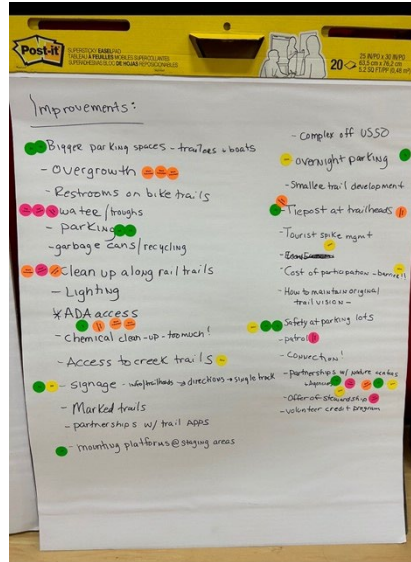 Post-it
SUPERSTICKY EASELPAD
20
25 IN/PO x 30 IN/PO
63,5 cm x 76,2 cm
Improvements:
Bigger parking spaces - trailers + boats
- Overgrowth
- Restrooms on bike trails
water/troughs
- parking
- garbage cans/recycling
Clean up along rail trails
- Lighting
*ADA access
- Chemical clean-up - too much!
- Access to creek trails
- signage - info/trailheads → directions → single track
- Marked trails
- partnerships w/ trail APPS
- mounting platforms @ staging areas
- Complex off US50
overnight parking
- Smaller trail development
- Tiepost at trailheads
- Tourist spike mgmt
- Cost of participation - barriers
- How to maintain original
trail vision -
Safety at parking lots
- patrol
- Connection!
- partnerships w/ nature centers
- Offer of stewardship
- volunteer credit program